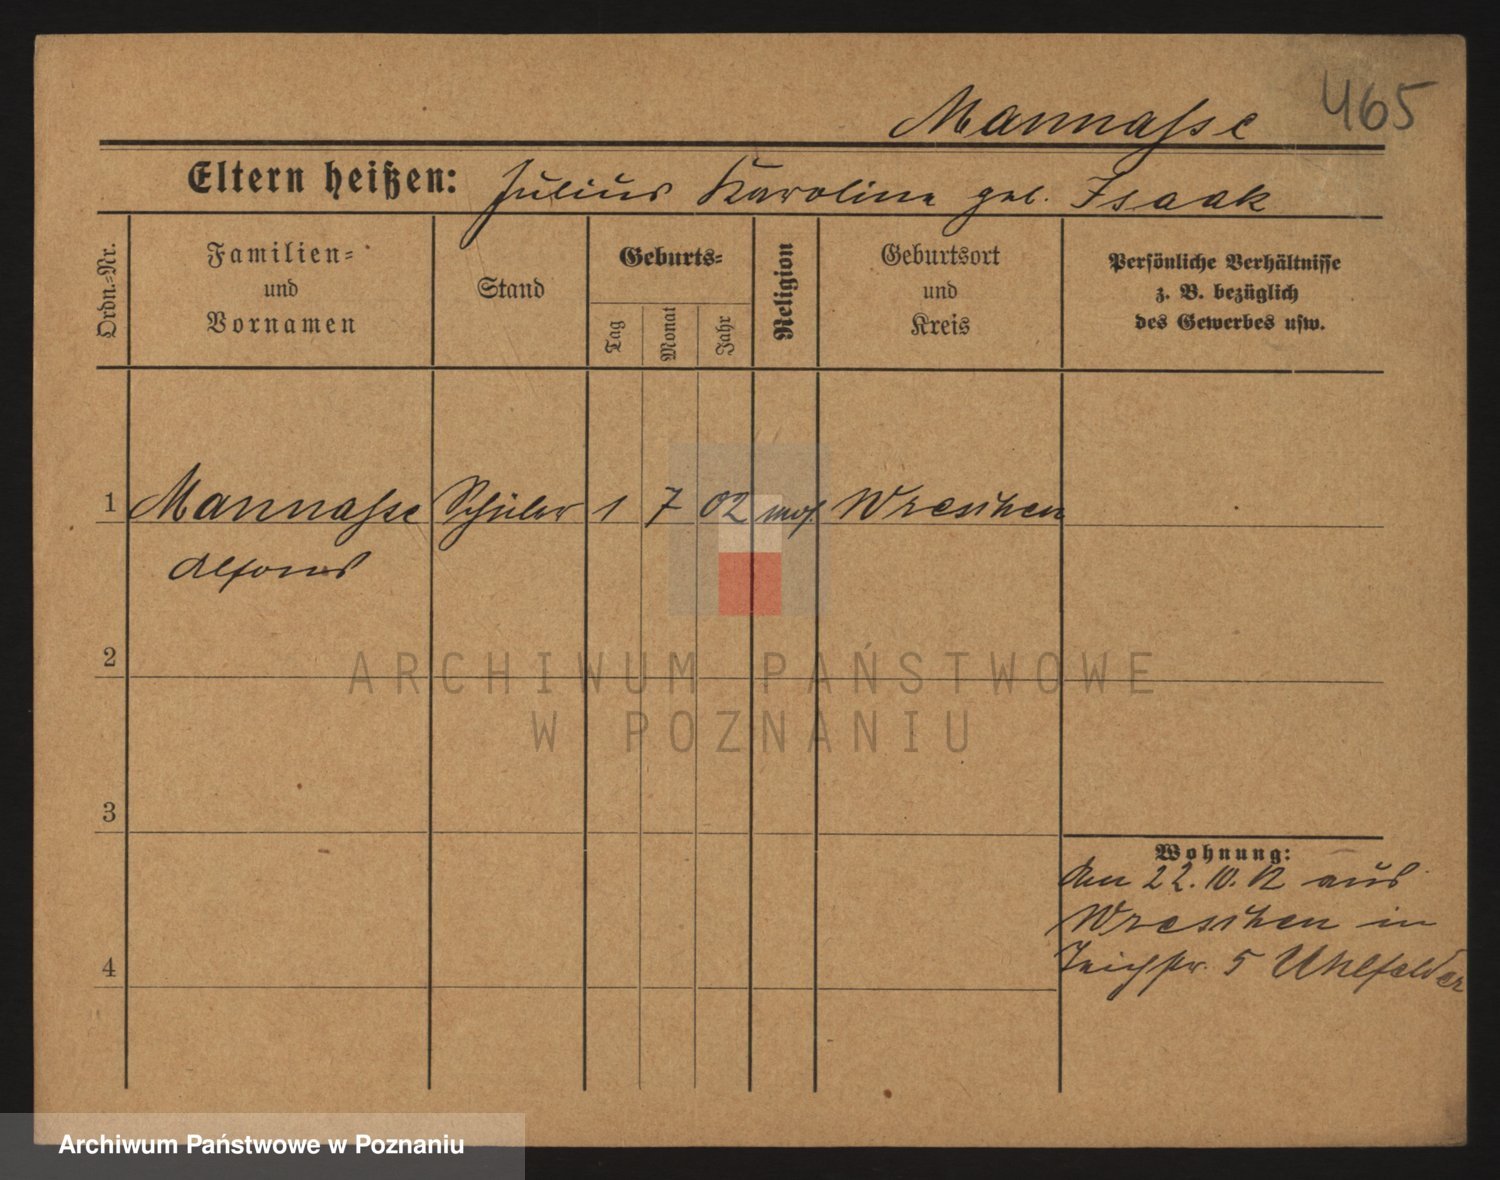 465
Mannasse
Eltern heißen: Julius Karoline geb. Isaak
Ordn.-Nr.
Familien-
und
Vornamen
Stand
Geburts-
Tag
Monat
Jahr
Religion
Geburtsort
und
Kreis
Persönliche Verhältnisse
z. B. bezüglich
des Gewerbes usw.
1 Mannasse Schüler 1 7 02 mos. Wreschen
Alfons
2
3
4
Wohnung:
den 22.10.12 aus
Wreschen in
Teichstr. 5 Uhlfelder
ARCHIWUM PAŃSTWOWE
W POZNANIU
Archiwum Państwowe w Poznaniu